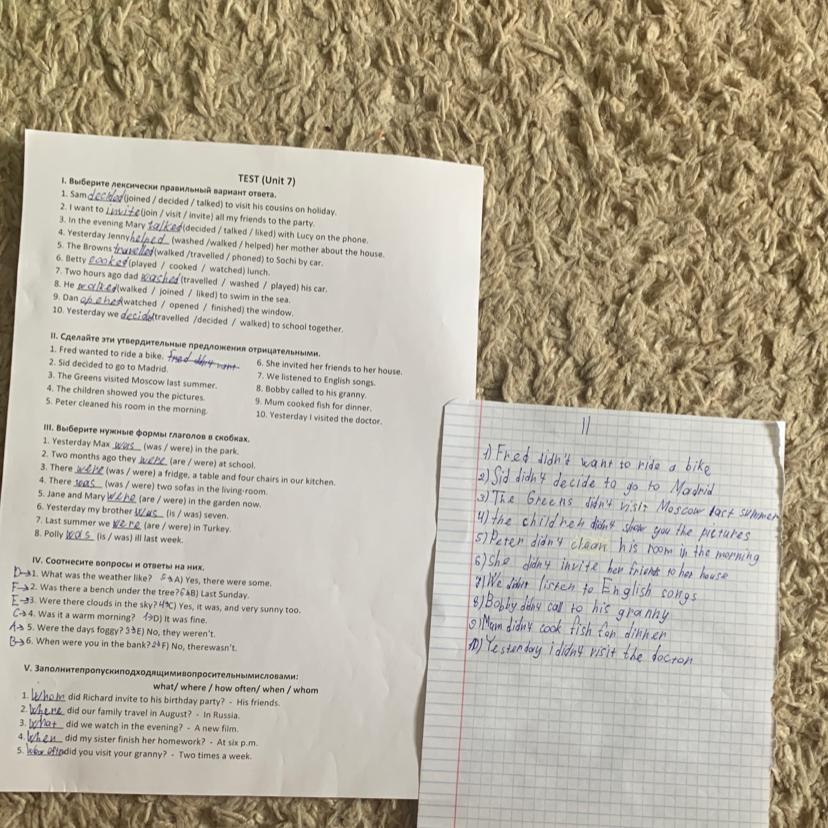 TEST (Unit 7)
I. Выберите лексически правильный вариант ответа.
1. Sam decided (joined / decided / talked) to visit his cousins on holiday.
2. I want to invite (join / visit / invite) all my friends to the party.
3. In the evening Mary talked (decided / talked / liked) with Lucy on the phone.
4. Yesterday Jenny helped (washed /walked / helped) her mother about the house.
5. The Browns travelled (walked /travelled / phoned) to Sochi by car.
6. Betty cooked (played / cooked / watched) lunch.
7. Two hours ago dad washed (travelled / washed / played) his car.
8. He walked (walked / joined / liked) to swim in the sea.
9. Dan opened (watched / opened / finished) the window.
10. Yesterday we decided (travelled /decided / walked) to school together.
II. Сделайте эти утвердительные предложения отрицательными.
1. Fred wanted to ride a bike. Fred
2. Sid decided to go to Madrid.
3. The Greens visited Moscow last summer.
4. The children showed you the pictures.
5. Peter cleaned his room in the morning.
6. She invited her friends to her house.
7. We listened to English songs.
8. Bobby called to his granny.
9. Mum cooked fish for dinner.
10. Yesterday I visited the doctor.
III. Выберите нужные формы глаголов в скобках.
1. Yesterday Max was (was / were) in the park.
2. Two months ago they were (are / were) at school.
3. There were (was / were) a fridge, a table and four chairs in our kitchen.
4. There was (was / were) two sofas in the living-room.
5. Jane and Mary were (are / were) in the garden now.
6. Yesterday my brother was (is / was) seven.
7. Last summer we were (are / were) in Turkey.
8. Polly was (is / was) ill last week.
IV. Соотнесите вопросы и ответы на них.
D→1. What was the weather like? 5→A) Yes, there were some.
F→2. Was there a bench under the tree? 6→B) Last Sunday.
E→3. Were there clouds in the sky? 4→C) Yes, it was, and very sunny too.
C→4. Was it a warm morning? 1→D) It was fine.
A→5. Were the days foggy? 3→E) No, they weren't.
B→6. When were you in the bank? 2→F) No, therewasn't.
V. Заполнитепропускиподходящимивопросительнымисловами:
what/ where / how often/ when / whom
1. Whom did Richard invite to his birthday party? - His friends.
2. Where did our family travel in August? - In Russia.
3. What did we watch in the evening? - A new film.
4. When did my sister finish her homework? - At six p.m.
5. How often did you visit your granny? - Two times a week.
II
1) Fred didn't want to ride a bike
2) Sid didn't decide to go to Madrid
3) The Greens didn't visit Moscow last summer
4) the children didn't show you the pictures
5) Peter didn't clean his room in the morning
6) she didn't invite her friends to her house
7) We didn't listen to English songs
8) Bobby didn't call to his granny
9) Mum didn't cook fish for dinner
10) Yesterday i didn't visit the doctor